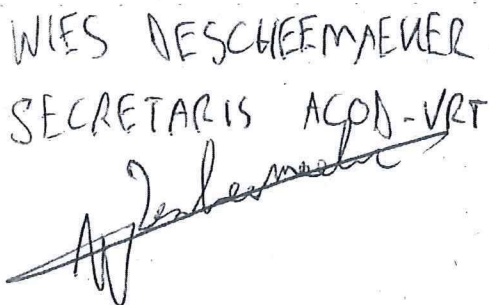 WIES DESCHEEMAEKER
SECRETARIS ACOD-VRT